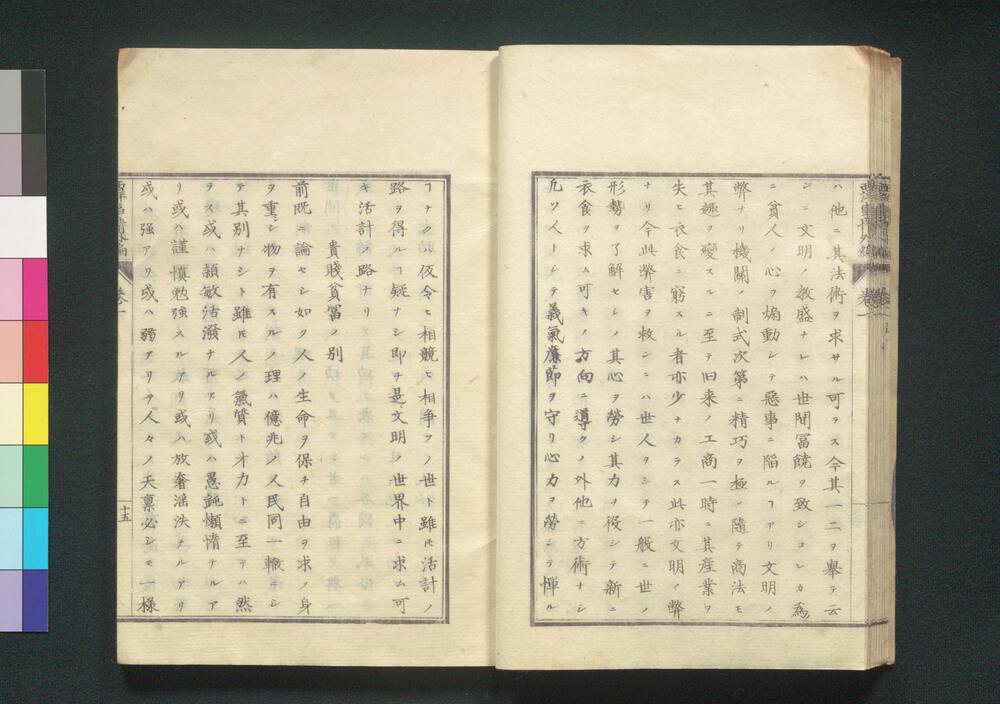 ハ他ニ其法術ヲ求サル可ラス今其一二ヲ舉テ云
ンニ文明ノ教盛ナレハ世間冨饒ヲ致シコレカ為
ニ貧人ノ心ヲ煽動シテ惡事ニ陥ルヿアリ文明ノ
弊ナリ機關ノ制式次第ニ精巧ヲ極シ隨テ商法モ
其趣ヲ變スルニ至テ旧来ノ工商一時ニ其産業ヲ
失ヒ衣食ニ窮スル者亦少ナカラス此亦文明ノ弊
ナリ今此弊害ヲ救ンニハ世人ヲシテ一般ニ世ノ
形勢ヲ了解セシメ其心ヲ勞シ其力ヲ役シテ新ニ
衣食ヲ求ム可キノ方向ニ導クノ外他ニ方術ナシ
凡ソ人トシテ義氣廉節ヲ守リ心力ヲ勞シテ憚ル
ヿナクハ仮令ヒ相競ヒ相争フノ世ト雖𪜈活計ノ
路ヲ得ルヿ疑ナシ即チ是文明ノ世界中ニ求ム可
キ活計ノ路ナリ
貴賤貧冨ノ別
前既ニ論セシ如ク人ノ生命ヲ保チ自由ヲ求メ身
ヲ重シ物ヲ有スルノ理ハ億兆ノ人民同一轍ニシ
テ其別ナシト雖𪜈人ノ氣質ト才力トニ至テハ然
ラス或ハ頴敏活潑ナルアリ或ハ愚鈍懶惰ナルア
リ或ハ謹慎勉強スルアリ或ハ放奢滛泆ナルアリ
或ハ强アリ或ハ弱アリテ人々ノ天禀必シモ一樣
卷一
十五